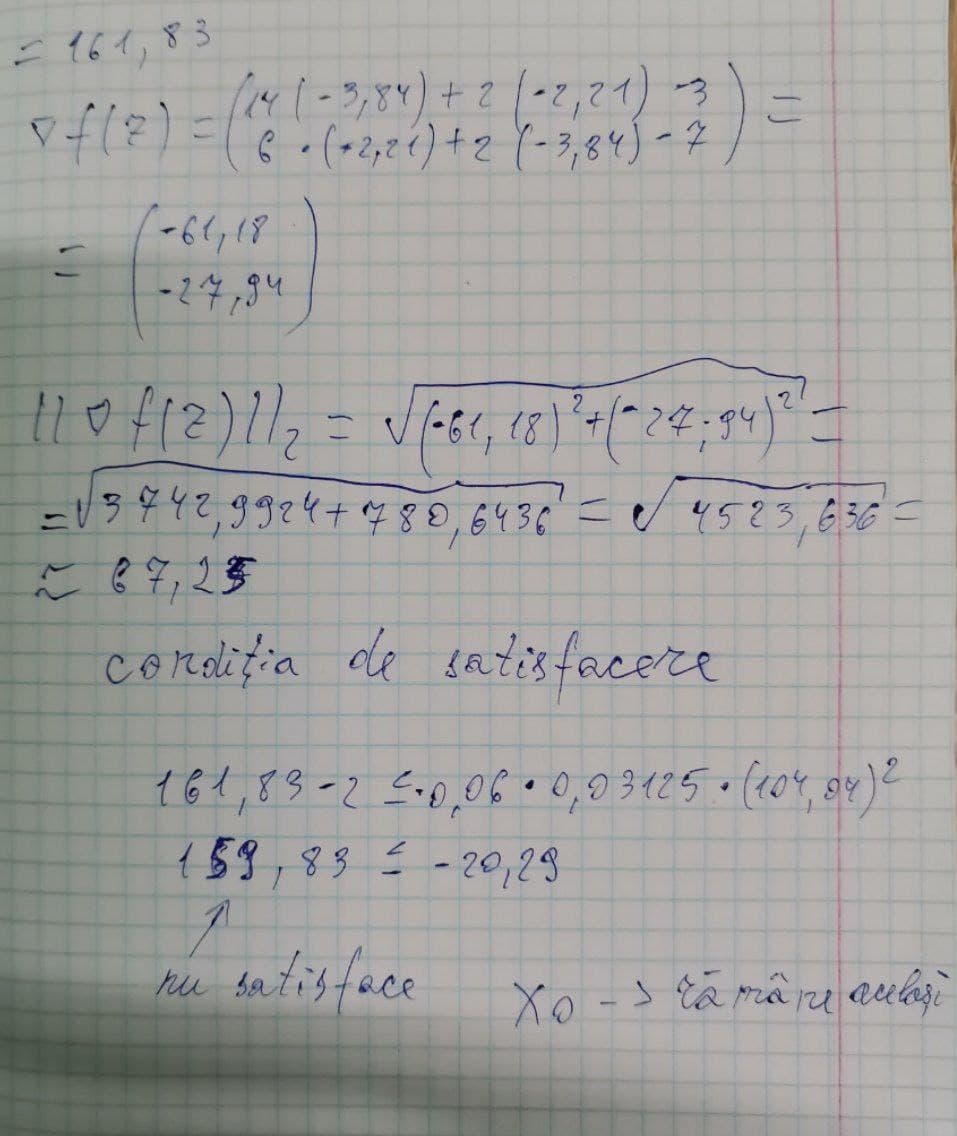 = 161,83
∇f(z) = (14(-3,84) + 2(-2,21) -3
6 · (-2,21) + 2(-3,84) - 7) =
= (-61,18
-27,94)
||∇f(z)||₂ = √(-61,18)² + (-27,94)² =
= √3742,9924 + 780,6436 = √4523,636 =
≈ 67,25
condiția de satisfacere
161,83 - 2 ≤ -0,06 · 0,03125 · (104,04)²
159,83 ≤ -20,29
nu satisface
X0 -> rămâne același